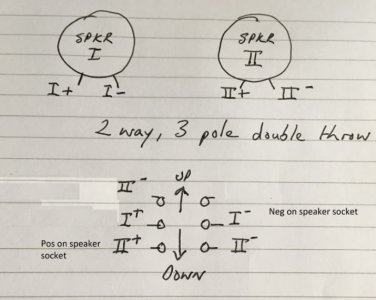 SPKR SPKR
I II
I+ I- II+ II-
2 way, 3 pole double throw
UP
II-
I+ I- Neg on speaker socket
Pos on speaker socket II+ II-
DOWN